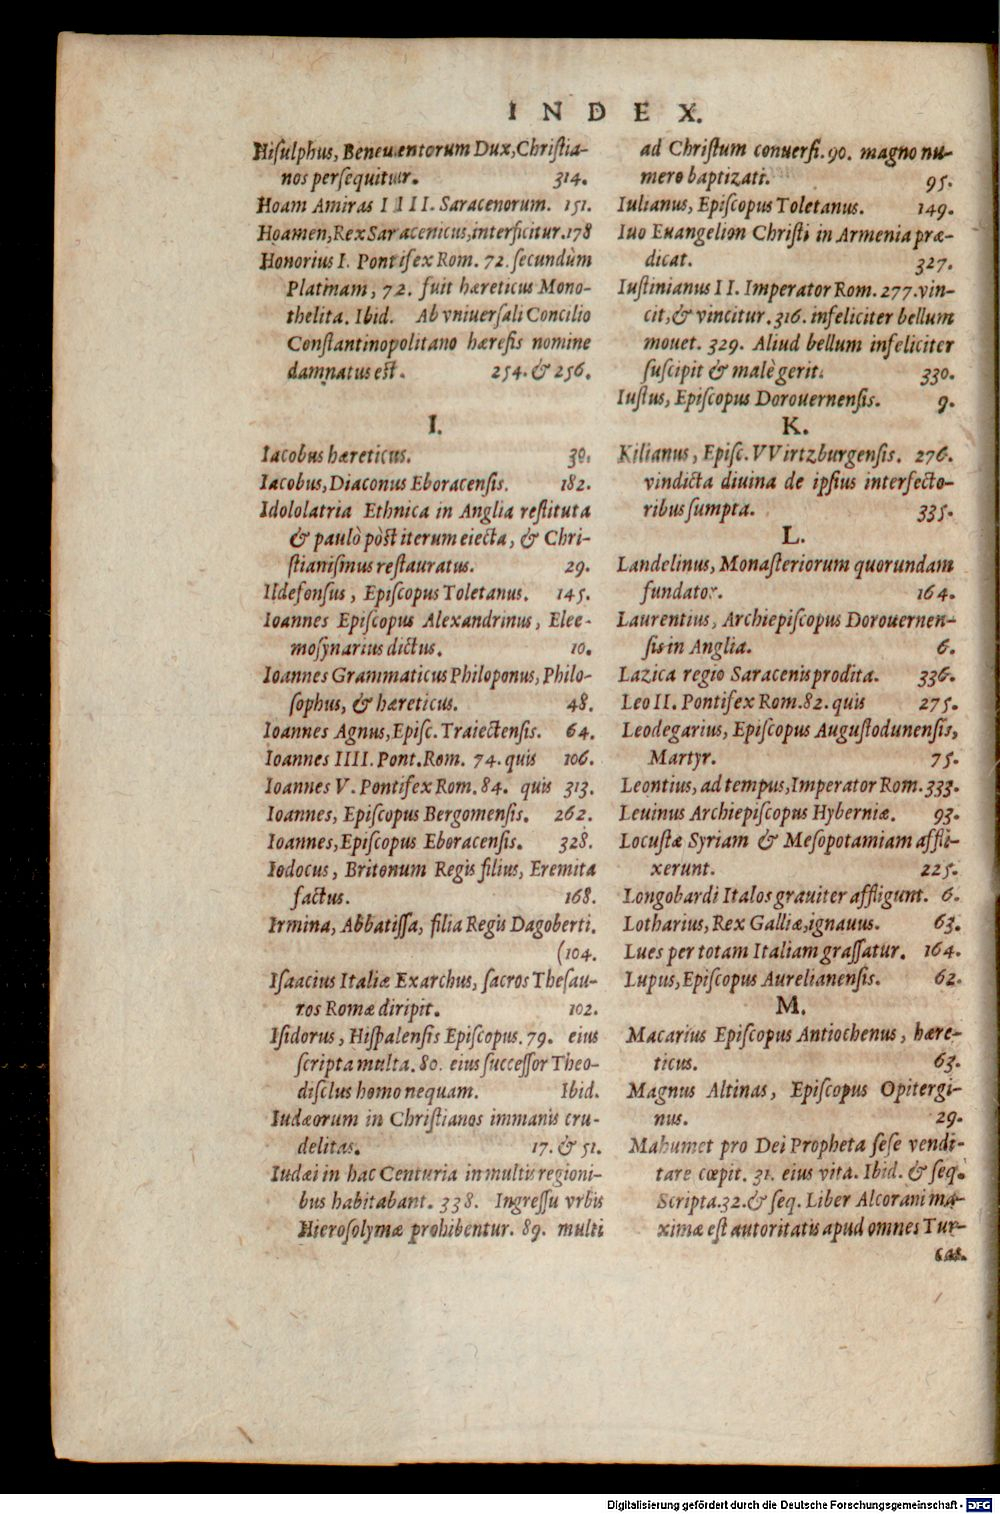 INDEX.
Hisulphus, Beneuentorum Dux, Christia-
nos persequitur. 314.
Hoam Amiras IIII. Saracenorum. 151.
Hoamen, Rex Saracenicus, interficitur. 178
Honorius I. Pontifex Rom. 72. secundùm
Platinam, 72. fuit hæreticus Mono-
thelita. Ibid. Ab vniuersali Concilio
Constantinopolitano hæresis nomine
damnatus est. 254. & 256.
I.
Iacobus hæreticus. 30.
Iacobus, Diaconus Eboracensis. 182.
Idololatria Ethnica in Anglia restituta
& paulò pòst iterum eiecta, & Chri-
stianismus restauratus. 29.
Ildefonsus, Episcopus Toletanus. 145.
Ioannes Episcopus Alexandrinus, Elee-
mosynarius dictus. 10.
Ioannes Grammaticus Philoponus, Philo-
sophus, & hæreticus. 48.
Ioannes Agnus, Episc. Traiectensis. 64.
Ioannes IIII. Pont. Rom. 74. quis 106.
Ioannes V. Pontifex Rom. 84. quis 313.
Ioannes, Episcopus Bergomensis. 262.
Ioannes, Episcopus Eboracensis. 328.
Iodocus, Britonum Regis filius, Eremita
factus. 168.
Irmina, Abbatissa, filia Regis Dagoberti.
(104.
Isaacius Italiæ Exarchus, sacros Thesau-
ros Romæ diripit. 102.
Isidorus, Hispalensis Episcopus. 79. eius
scripta multa. 80. eius successor Theo-
disclus homo nequam. Ibid.
Iudæorum in Christianos immanis cru-
delitas. 17. & 51.
Iudæi in hac Centuria in multis regioni-
bus habitabant. 338. Ingressu vrbis
Hierosolymæ prohibentur. 89. multi
ad Christum conuersi. 90. magno nu-
mero baptizati. 95.
Iulianus, Episcopus Toletanus. 149.
Iuo Euangelion Christi in Armenia præ-
dicat. 327.
Iustinianus II. Imperator Rom. 277. vin-
cit, & vincitur. 316. infeliciter bellum
mouet. 329. Aliud bellum infeliciter
suscipit & malè gerit. 330.
Iustus, Episcopus Dorouernensis. 9.
K.
Kilianus, Episc. VVirtzburgensis. 276.
vindicta diuina de ipsius interfecto-
ribus sumpta. 335.
L.
Landelinus, Monasteriorum quorundam
fundator. 164.
Laurentius, Archiepiscopus Dorouernen-
sis in Anglia. 6.
Lazica regio Saracenis prodita. 336.
Leo II. Pontifex Rom. 82. quis 275.
Leodegarius, Episcopus Augustodunensis,
Martyr. 75.
Leontius, ad tempus, Imperator Rom. 333.
Leuinus Archiepiscopus Hyberniæ. 93.
Locustæ Syriam & Mesopotamiam affli-
xerunt. 225.
Longobardi Italos grauiter affligunt. 6.
Lotharius, Rex Galliæ, ignauus. 63.
Lues per totam Italiam grassatur. 164.
Lupus, Episcopus Aurelianensis. 62.
M.
Macarius Episcopus Antiochenus, hære-
ticus. 63.
Magnus Altinas, Episcopus Opitergi-
nus. 29.
Mahumet pro Dei Propheta sese vendi-
tare cœpit. 31. eius vita. Ibid. & seq.
Scripta. 32. & seq. Liber Alcorani ma-
ximæ est autoritatis apud omnes Tur-
cas.
Digitalisierung gefördert durch die Deutsche Forschungsgemeinschaft - DFG